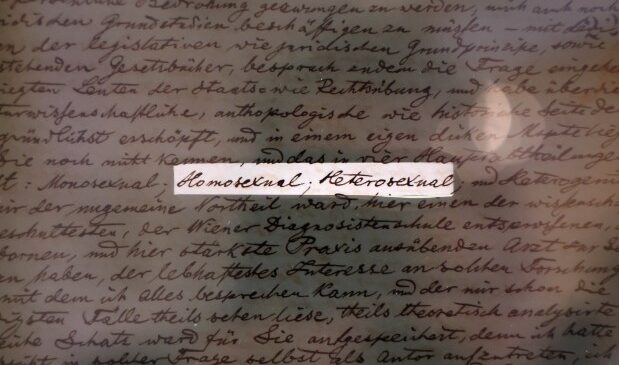 Bedrohung gezwungen zu werden, mich auch noch
juridischen Grundstudien beschäftigen zu müssen – mit den
en der legislativen wie juridischen Grundprinzipe, sowie
stehenden Gesetzbücher, besprach endem die Frage eingehe
iegten Leuten der Staats wie Rechtsübung, und habe überdie
turwissenschaftliche, anthopologische wie historische Seite de
gründlichst erschöpft, und in einem eigen dicken
Sie noch nicht kennen, und das in vier
t: Monosexual; Homosexual; Heterosexual; und Heterogenit
mir der nugemeine Vortheil ward, hier einen der wissensch
geschultesten, der Wiener Diagnosistenschule entsprossenen,
bornen, und hier stärkste Praxis ausübenden Arzt zur
en haben, der lebhaftestes Interesse an solchen Forschung
mit dem ich alles besprechen kann, und der mir schon die
Fälle theils sehen liese, theils theoretisch analysirte
Schatz ward für Sie aufgespeichert, denn ich hatte
in solcher Frage selbst als Autor aufzutreten, ich